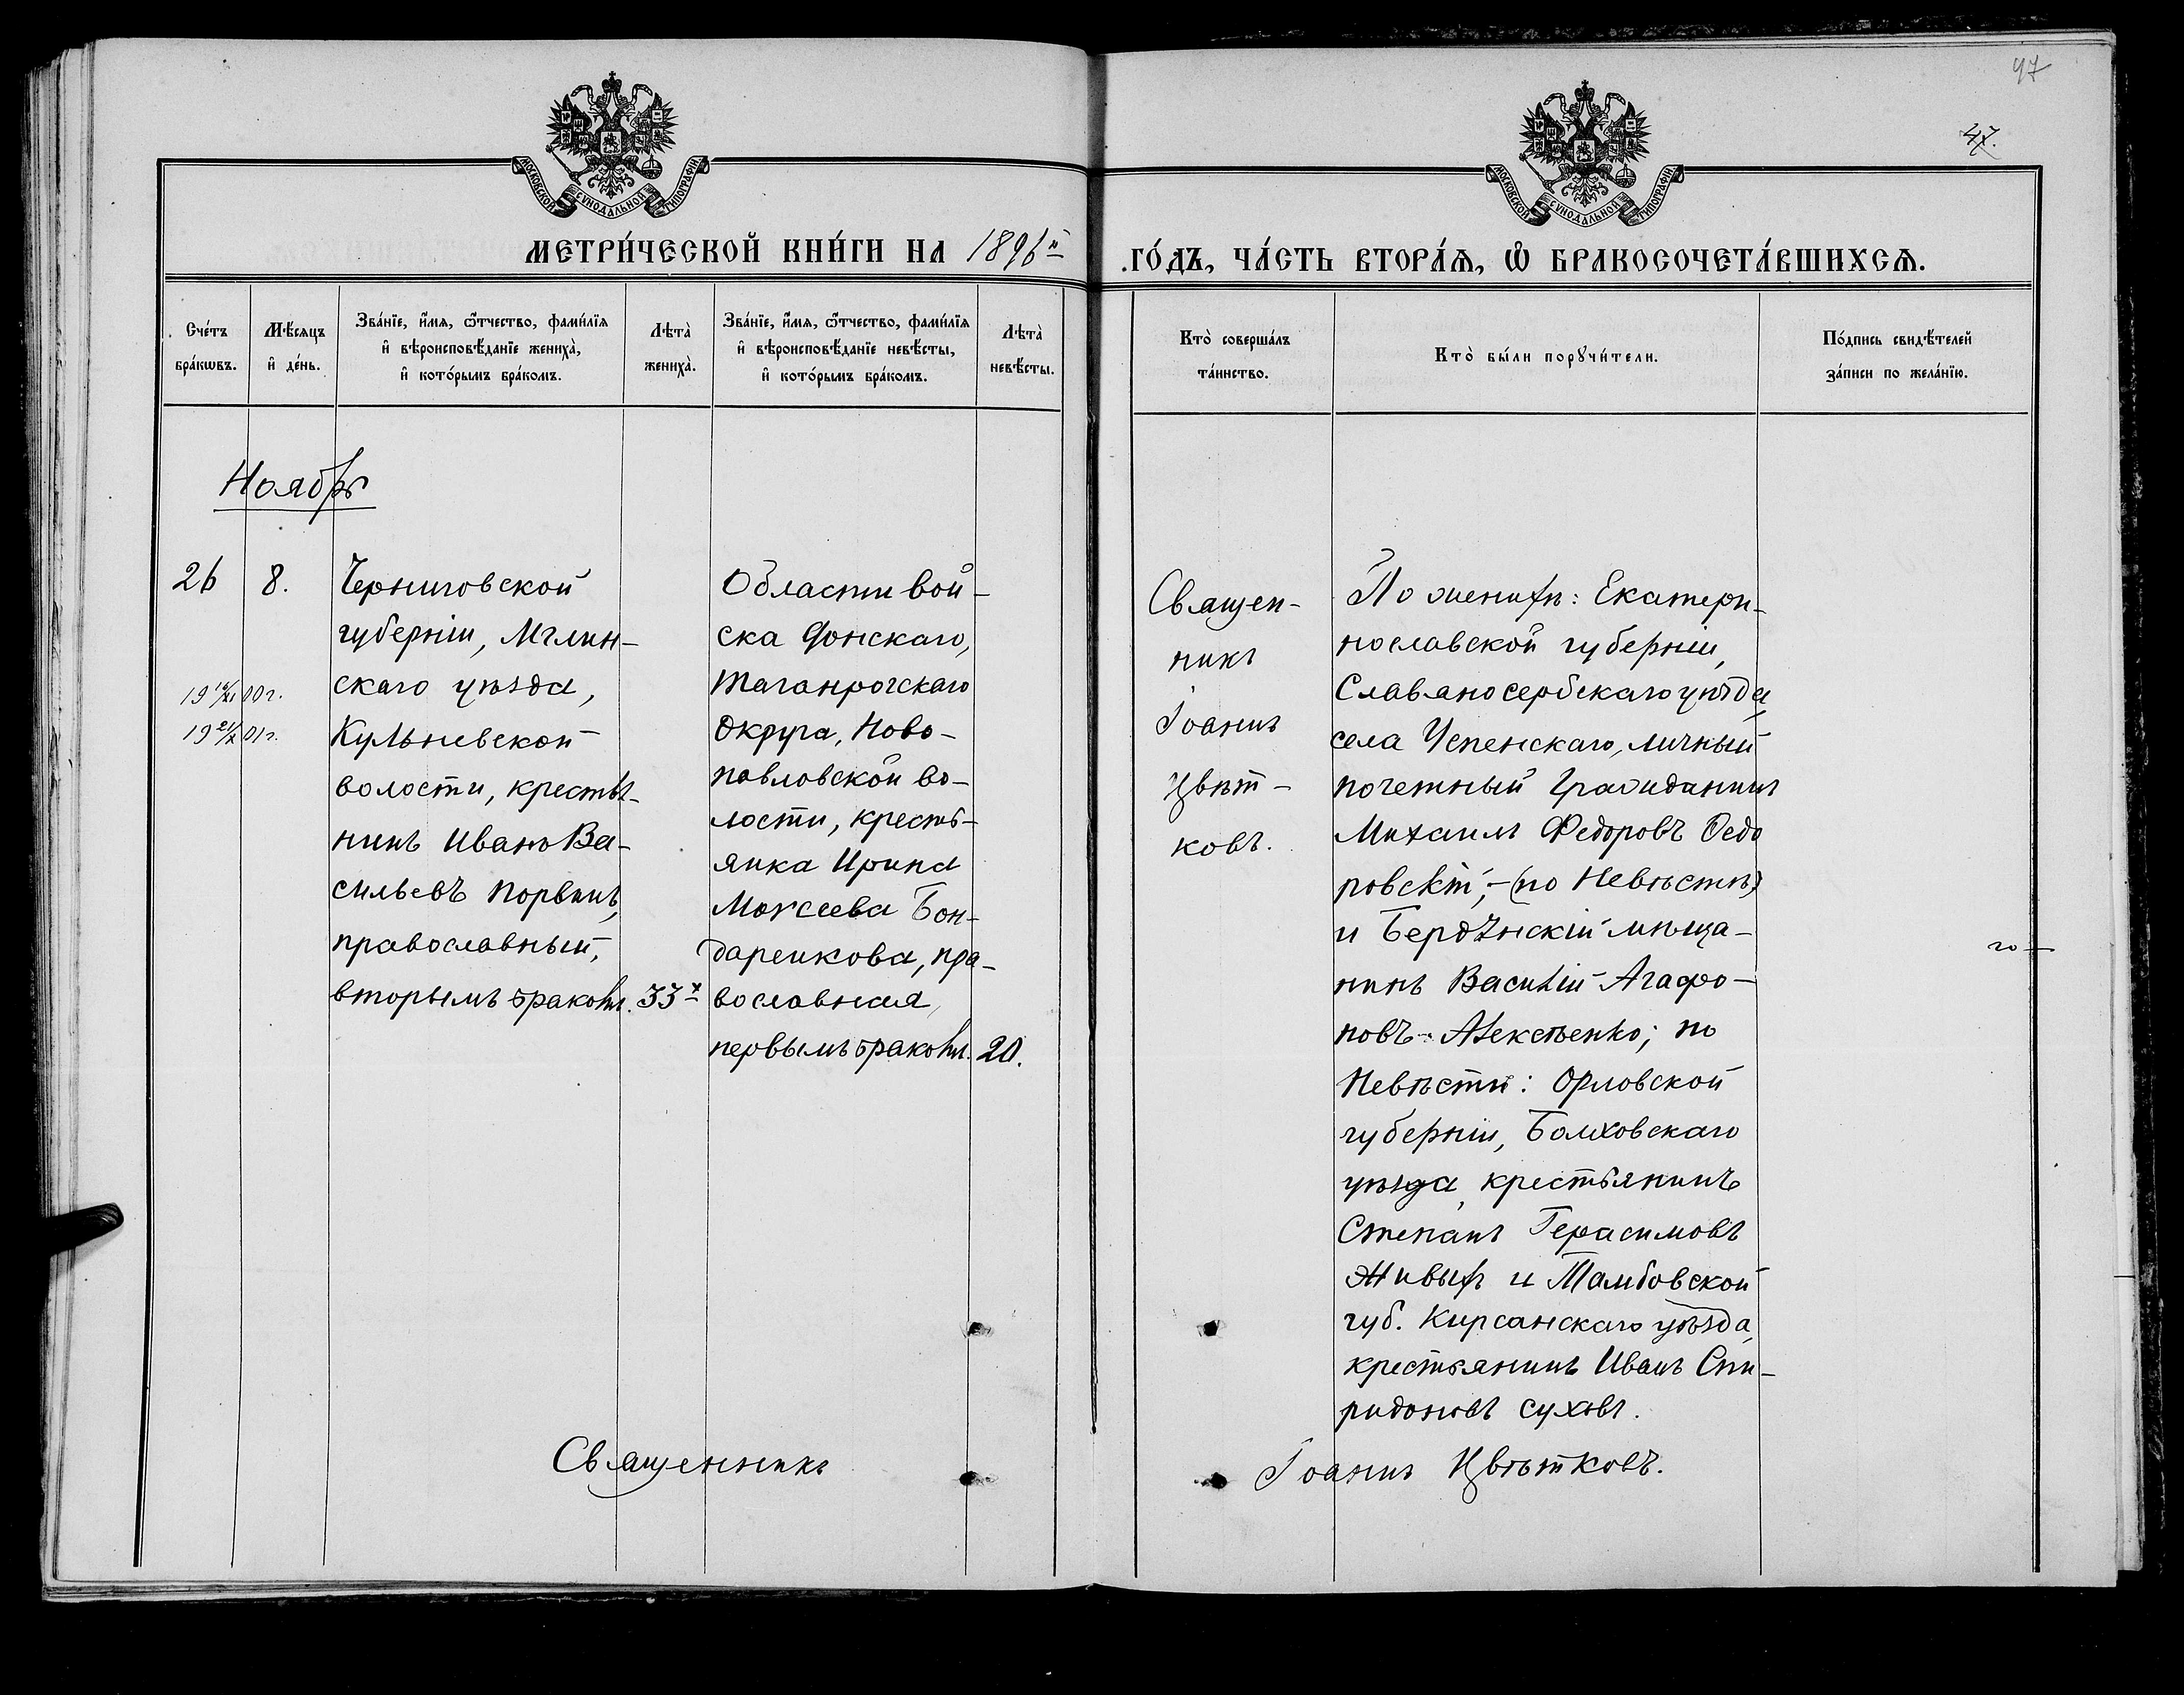 97
47.
МОСКОВСКОЙ СѴНОДАЛЬНОЙ ТИПОГРАФІИ
МОСКОВСКОЙ СѴНОДАЛЬНОЙ ТИПОГРАФІИ
МЕТРИ́ЧЕСКОЙ КНИ́ГИ НА 1896й
ГО́ДЪ, ЧА́СТЬ ВТОРА́Ѧ, Ѡ БРАКОСОЧЕТА́ВШИХСѦ.
Сче́тъ бра́кѡвъ.
Мѣ́сяцъ и҆ де́нь.
Зва́нїе, и҆́мя, ѻ҆́тчество, фами́лїя и҆ вѣроисповѣ́данїе жениха̀, и҆ кото́рымъ бра́комъ.
Лѣта̀ жениха̀.
Зва́нїе, и҆́мя, ѻ҆́тчество, фами́лїя и҆ вѣроисповѣ́данїе невѣ́сты, и҆ кото́рымъ бра́комъ.
Лѣта̀ невѣ́сты.
Кто̀ соверша́лъ та́инство.
Кто̀ бы́ли порꙋчи́тели.
По́дпись свидѣ́телей за́писи по жела́нїю.
Ноябрь
26
8.
19 16/XI 00 г.
19 21/X 01 г.
Черниговской
губерніи, Мглин-
скаго уѣзда,
Кульневской
волости, кресть-
нинъ Иванъ Ва-
сильевъ Порвинъ,
православный,
вторымъ бракомъ.
33х
Области вой-
ска Донскаго,
Таганрогскаго
Округа, Ново-
павловской во-
лости, кресть-
янка Ирина
Моисеева Бон-
даренкова, пра-
вославная,
первымъ бракомъ.
20.
Священ-
никъ
Іоаннъ
Цвѣт-
ковъ.
По женихѣ: Екатери-
нославской губерніи,
Славяносербскаго уѣзда,
села Успенскаго, личный
почетный Гражданинъ
Михаилъ Федоровъ Федо
ровскій; (по Невѣстѣ)
и Бердянскій мѣща-
нинъ Василій Агафо-
новъ Алексѣенко; по
Невѣсти: Орловской
губерніи, Болховскаго
уѣзда, крестьянинъ
Степанъ Герасимовъ
Живыхъ и Тамбовской
губ. Кирсанскаго уѣзда,
крестьянинъ Иванъ Спи-
ридоновъ Суховъ.
го
Священникъ
Іоаннъ Цвѣтковъ.